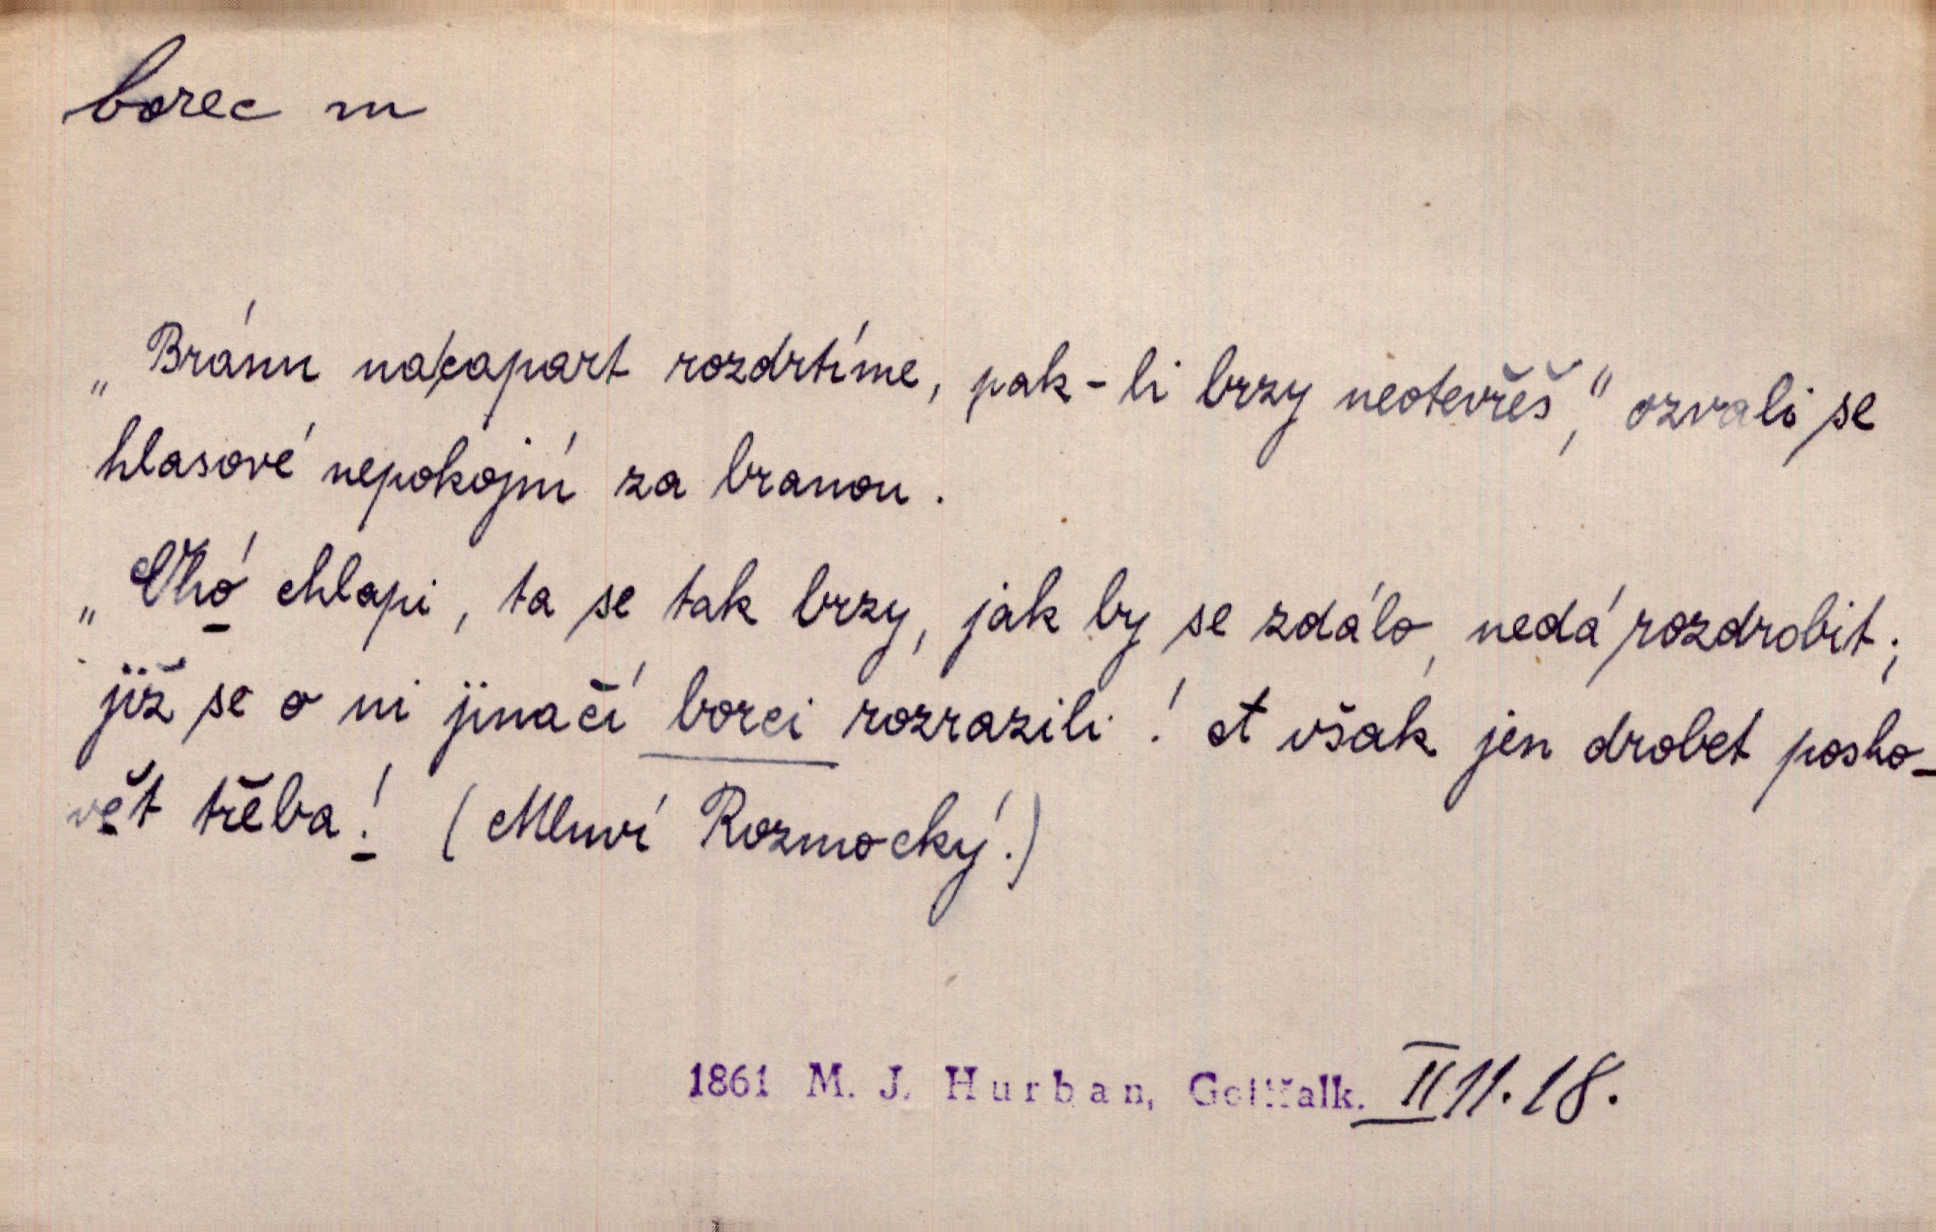 borec m
„Bránu na capart rozdrtíme, pak-li brzy neotevřěš," ozvali se
hlasové nepokojní za branou.
„Ohó chlapi, ta se tak brzy, jak by se zdálo, nedá rozdrobit;
již se o ni jinačí borci rozrazili! A však jen drobet posho-
vět třěba! (Mluví Rozmocký.)
1861 M. J. Hurban, Gottšalk. II 11. 18.